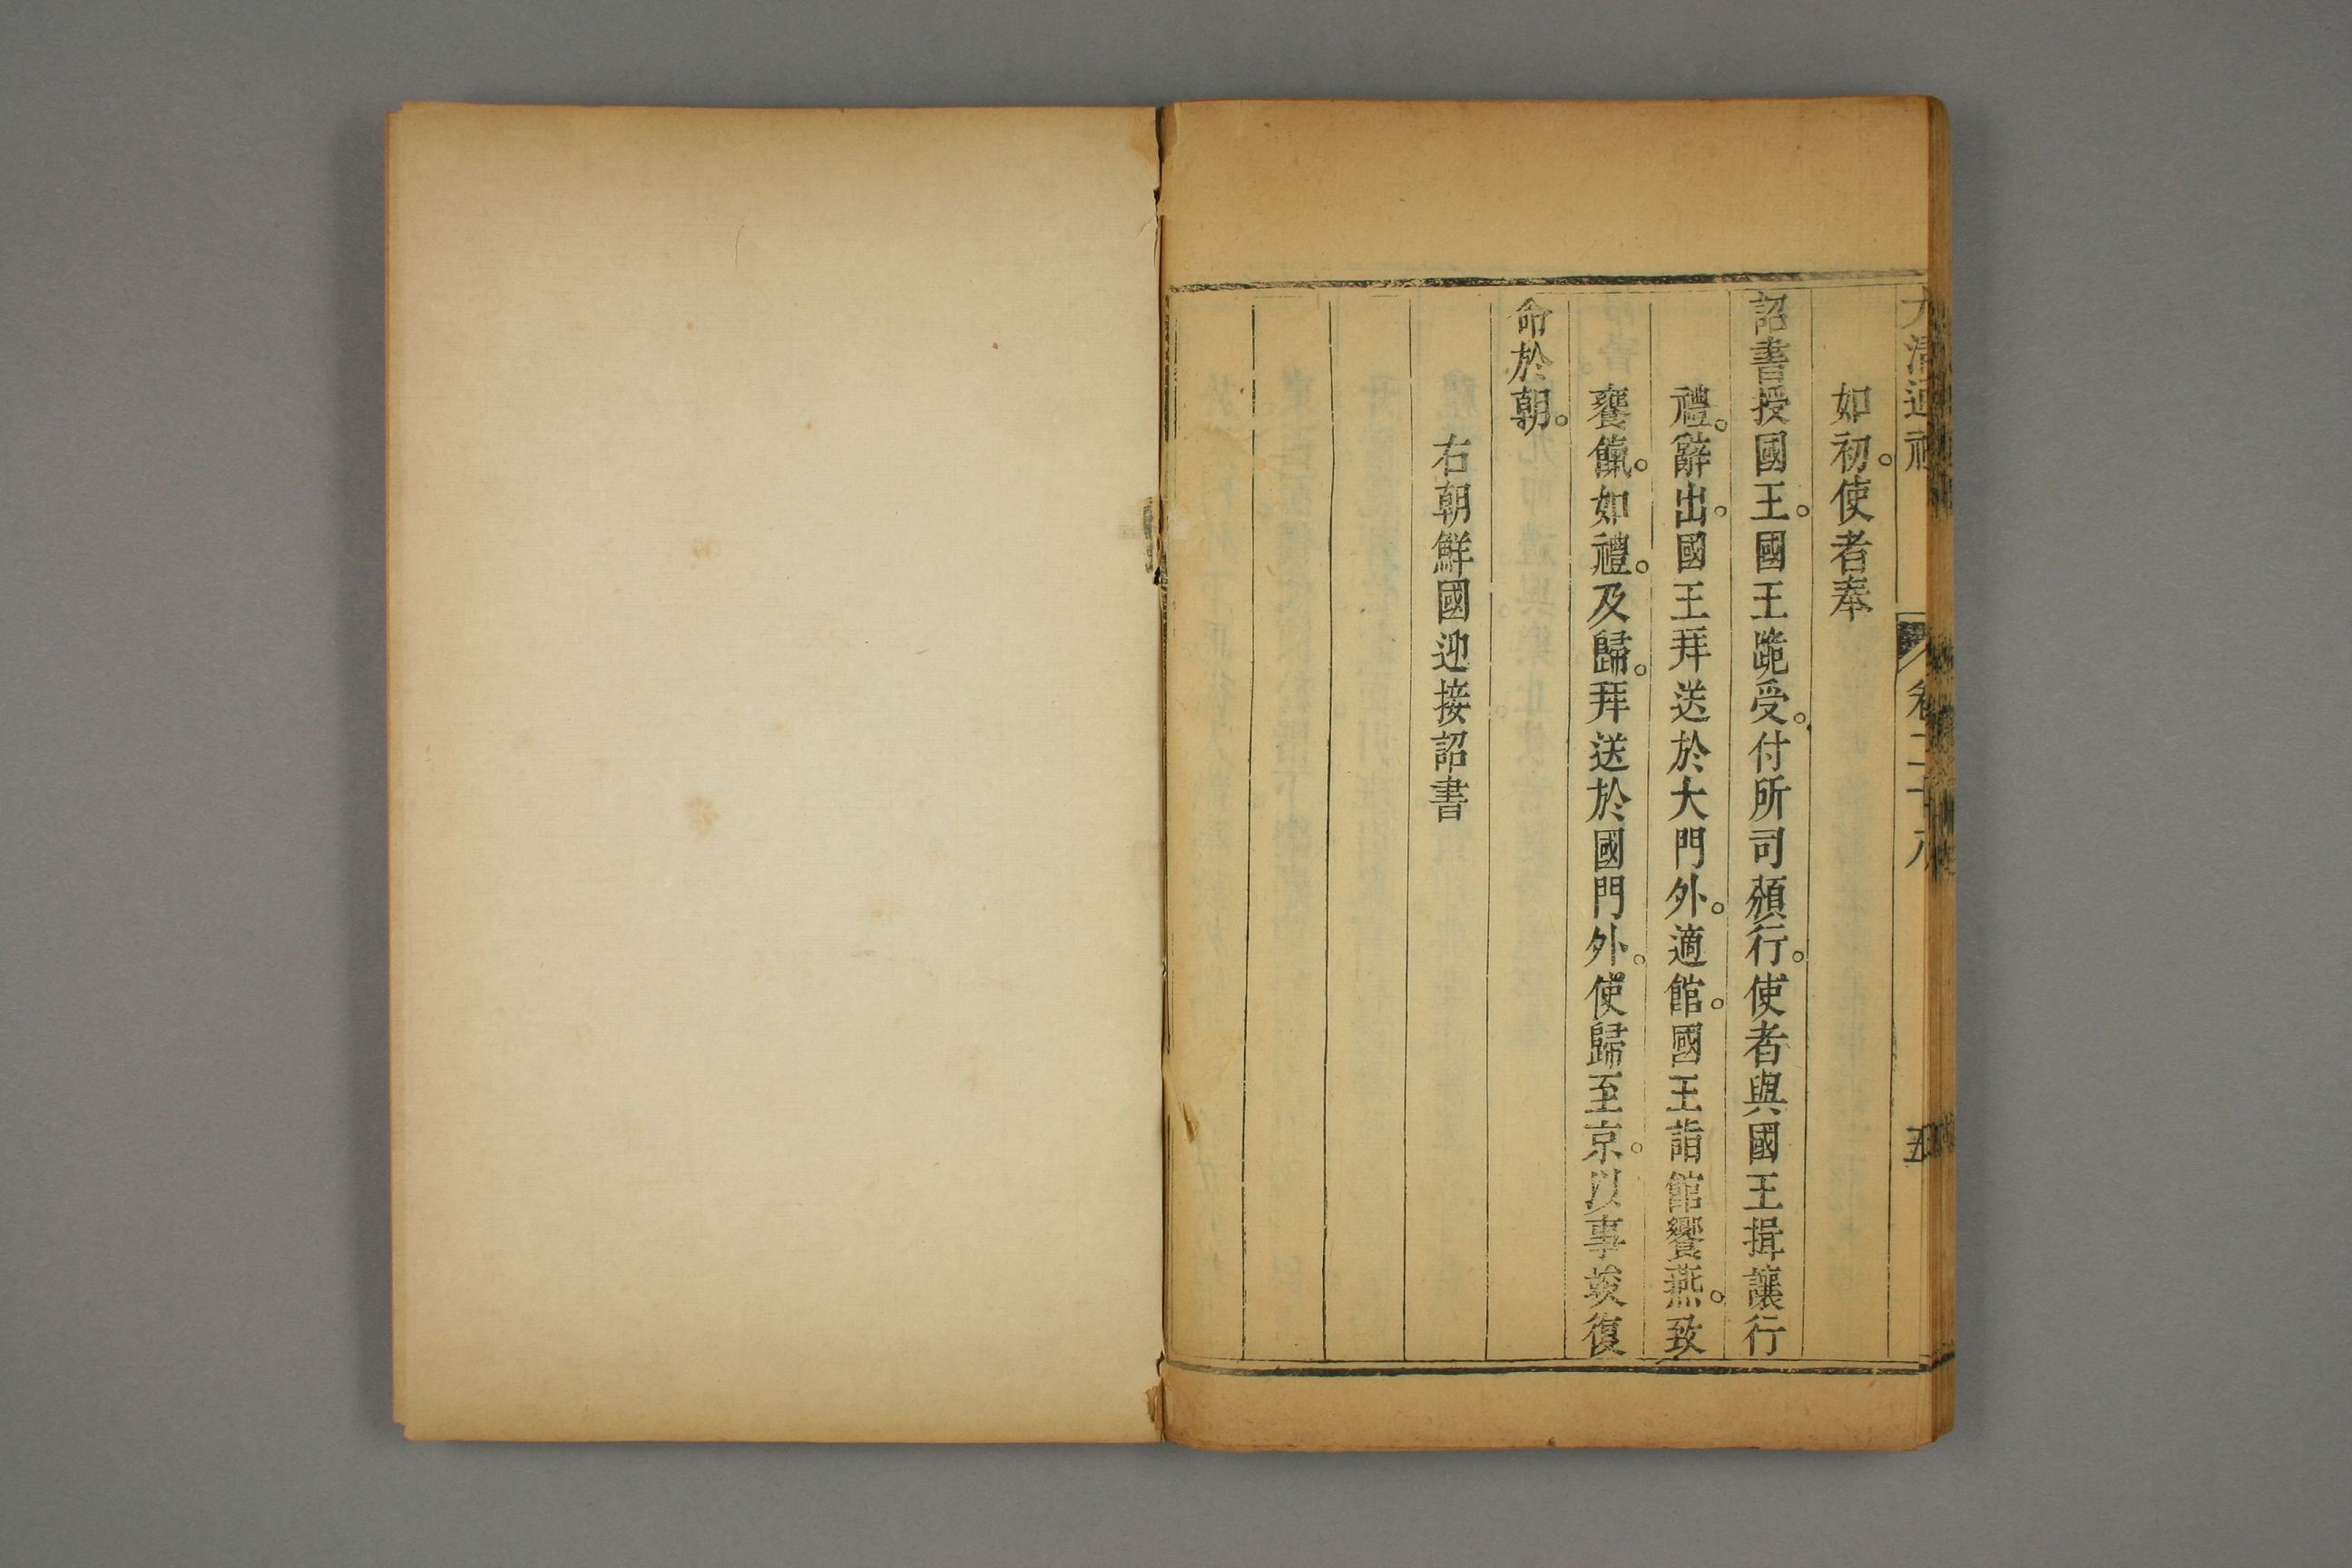 大清通禮 卷二十八 五
如初。使者奉
詔書授國王。國王跪受。付所司頒行。使者與國王揖讓行
禮。辭出。國王拜送於大門外。適館。國王詣館饗燕。致
饔餼。如禮。及歸。拜送於國門外。使歸至京。以事竣復
命於朝。
右朝鮮國迎接詔書